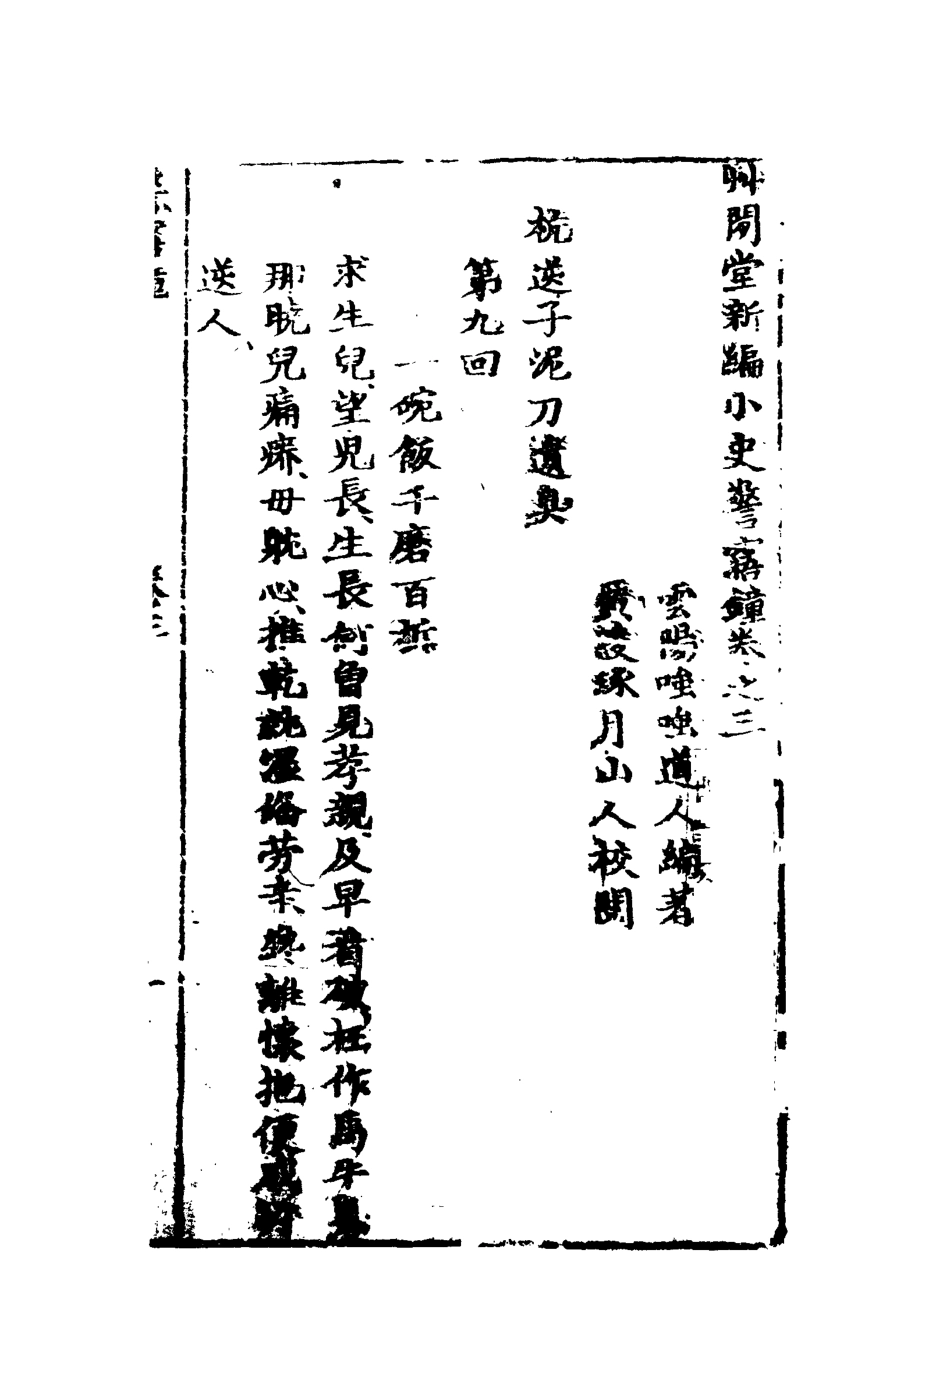 艸閒堂新編小史警寤鐘卷之三
雲陽嗤嗤道人編著
廣陵琢月山人校閱
杌逆子泥刀遺臭
第九回
一碗飯千磨百折
求生兒望兒長生長何曾見孝親及早看破枉作馬牛身
那曉兒痛痒母躭心推乾就濕俻劳辛纔離懷抱便成忤
逆人
卷三
一